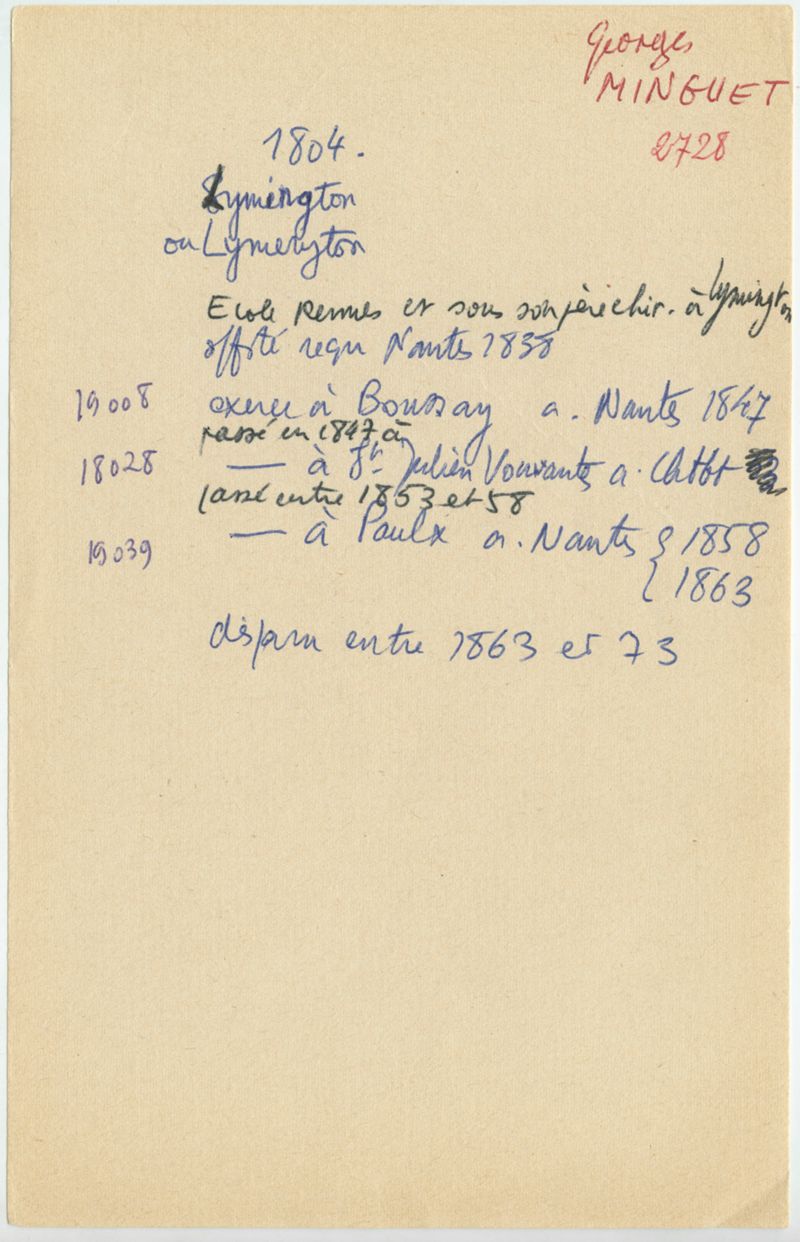 Georges
MINGUET
2728
1804.
Lymington
ou Lymeryton
Ecole Rennes et sous son père chir. à Lymington
offité reçu Nantes 1838
19008 exerce à Boussay a. Nantes 1847
passé en 1847 à
18028 — à St Julien Vouvantes a. Chtbt
passé entre 1853 et 58
19039 — à Paulx a. Nantes { 1858
{ 1863
disparu entre 1863 et 73